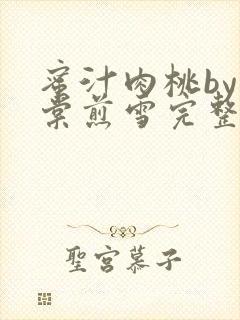 蜜汁肉桃by
棠煎雪完整
聖宮慕子